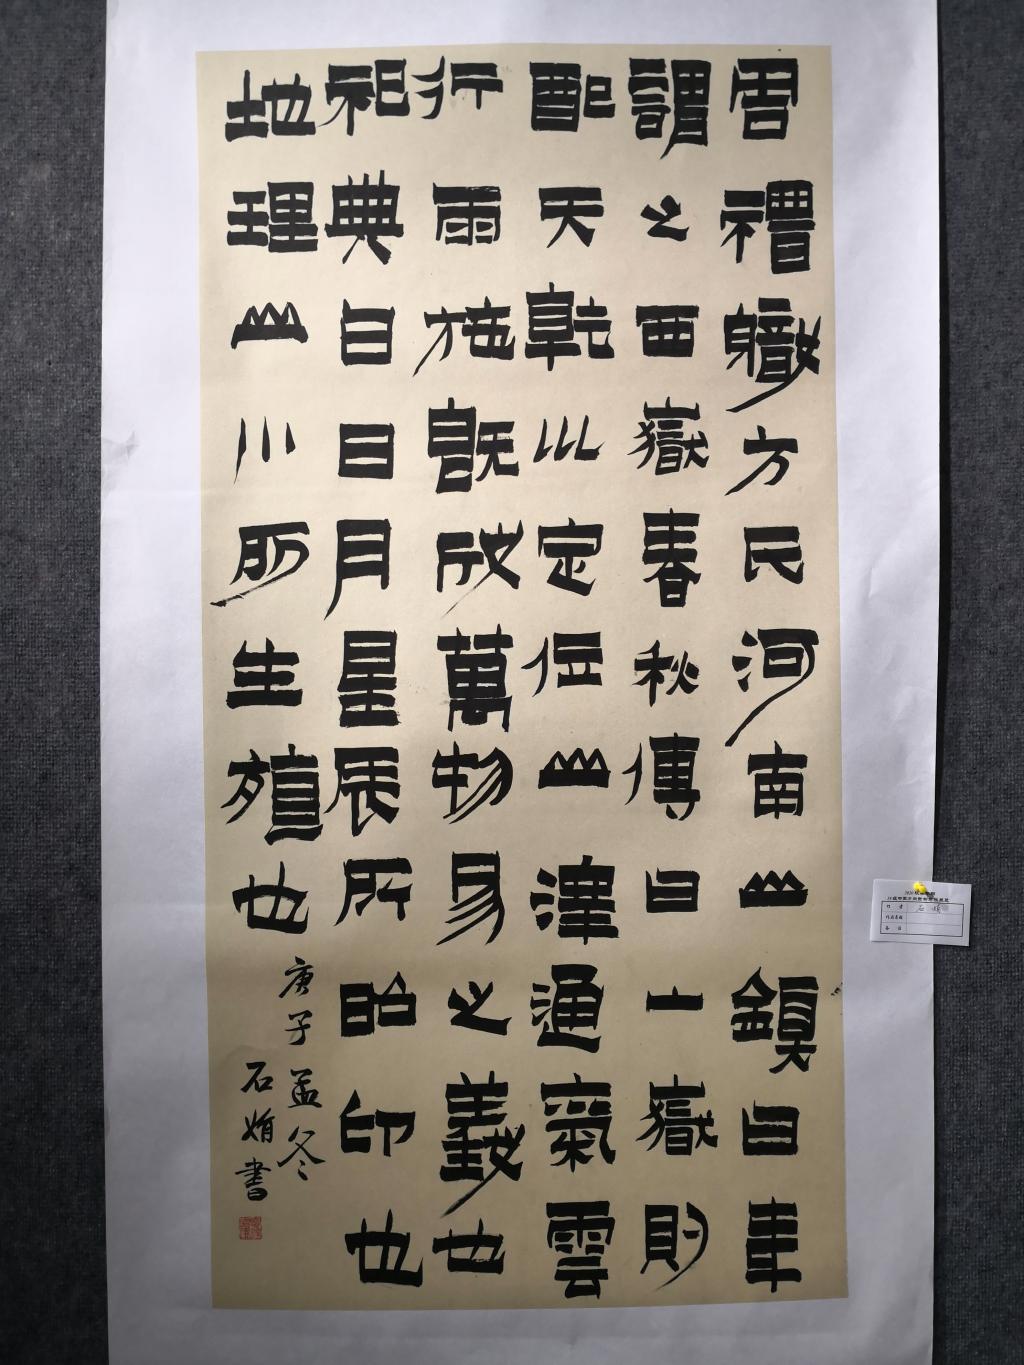 周禮職方氏河南山鎮曰華
謂之西嶽春秋傳曰一嶽則
配天乾㠯定位山澤通氣雲
行雨施既成萬物易之義也
祀典曰日月星辰所昭卬也
地理山川所生殖也
庚子孟冬
石婧書